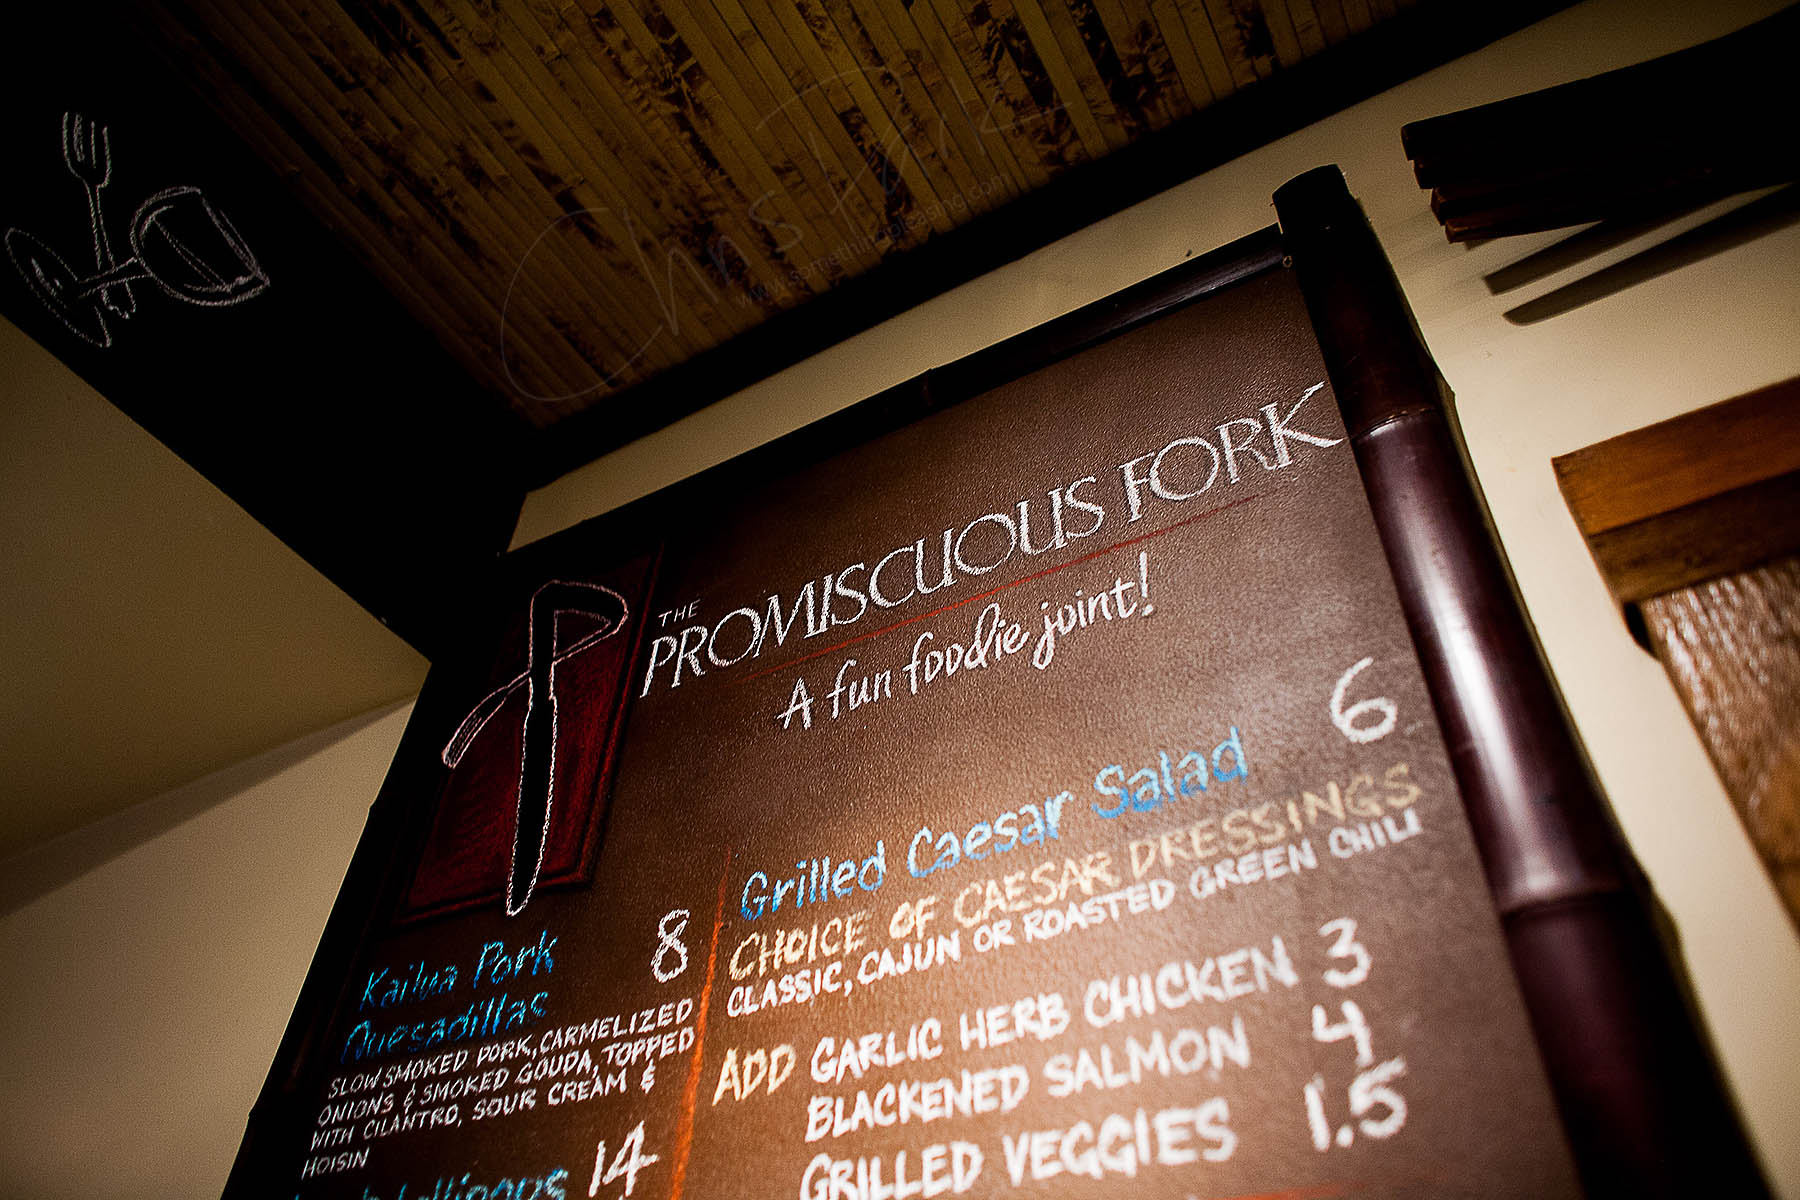 Chris Park
www.somethingpleasing.com
THE
PROMISCUOUS FORK
A fun foodie joint!
Kailua Pork 8
Quesadillas
SLOW SMOKED PORK, CARMELIZED
ONIONS & SMOKED GOUDA, TOPPED
WITH CILANTRO, SOUR CREAM &
HOISIN
14
Grilled Caesar Salad 6
CHOICE OF CAESAR DRESSINGS
CLASSIC, CAJUN OR ROASTED GREEN CHILI
ADD GARLIC HERB CHICKEN 3
BLACKENED SALMON 4
GRILLED VEGGIES 1.5